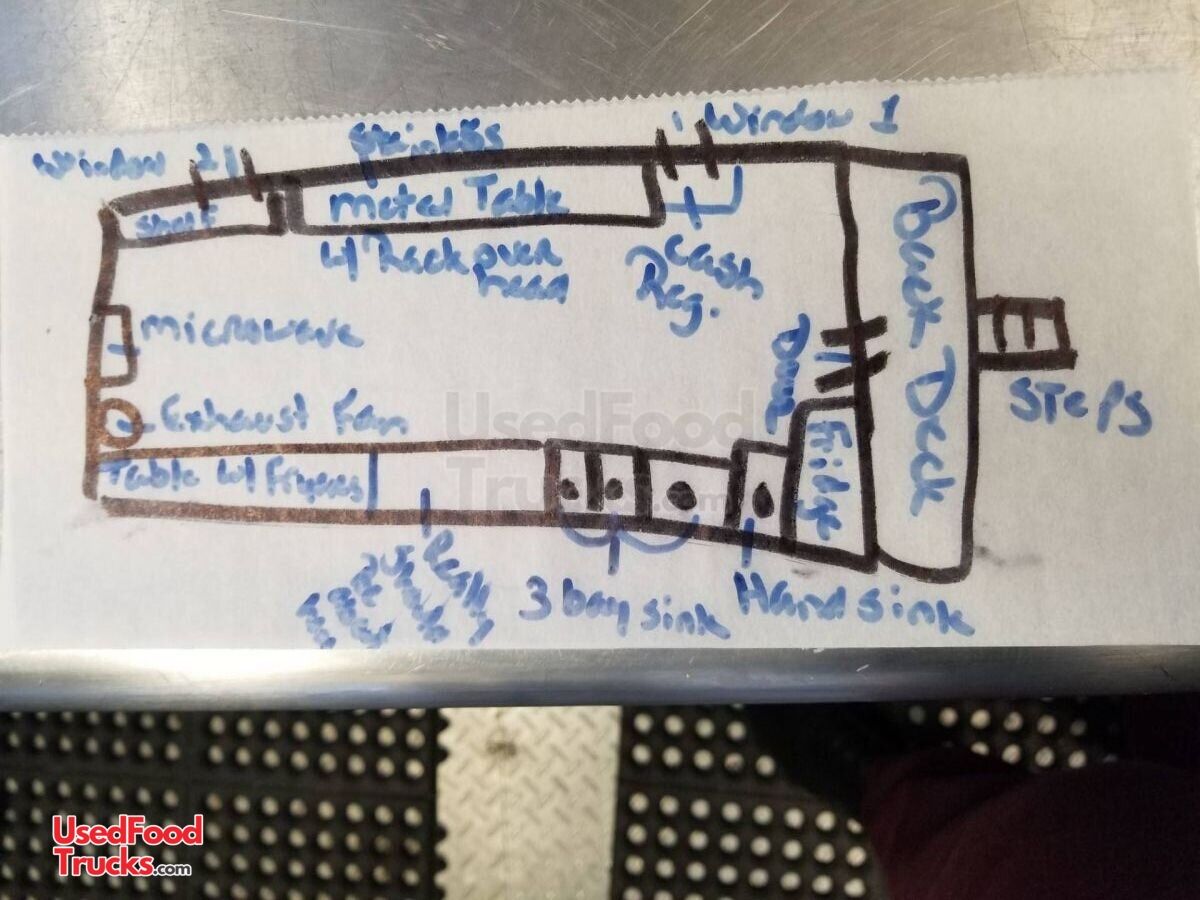 Window 2
Window 1
Shelf
Metal Table
w/ Rack over
head
Cash
Reg.
Microwave
Exhaust Fan
Door
Fridge
Back Deck
Steps
Table w/ Fryers
3 bay sink
Hand sink
UsedFood
Trucks.com
UsedFood
Trucks.com